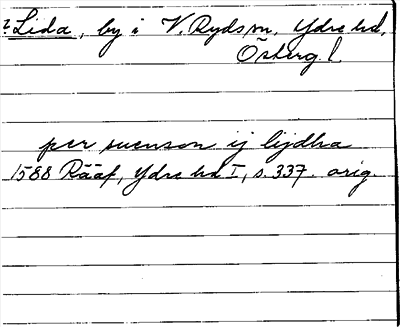 ? Lida, by i V. Ryds sn, Ydre hd,
Österg. l
per suenson ij lijdha
1588 Rääf, Ydre hd I, s. 337. orig.